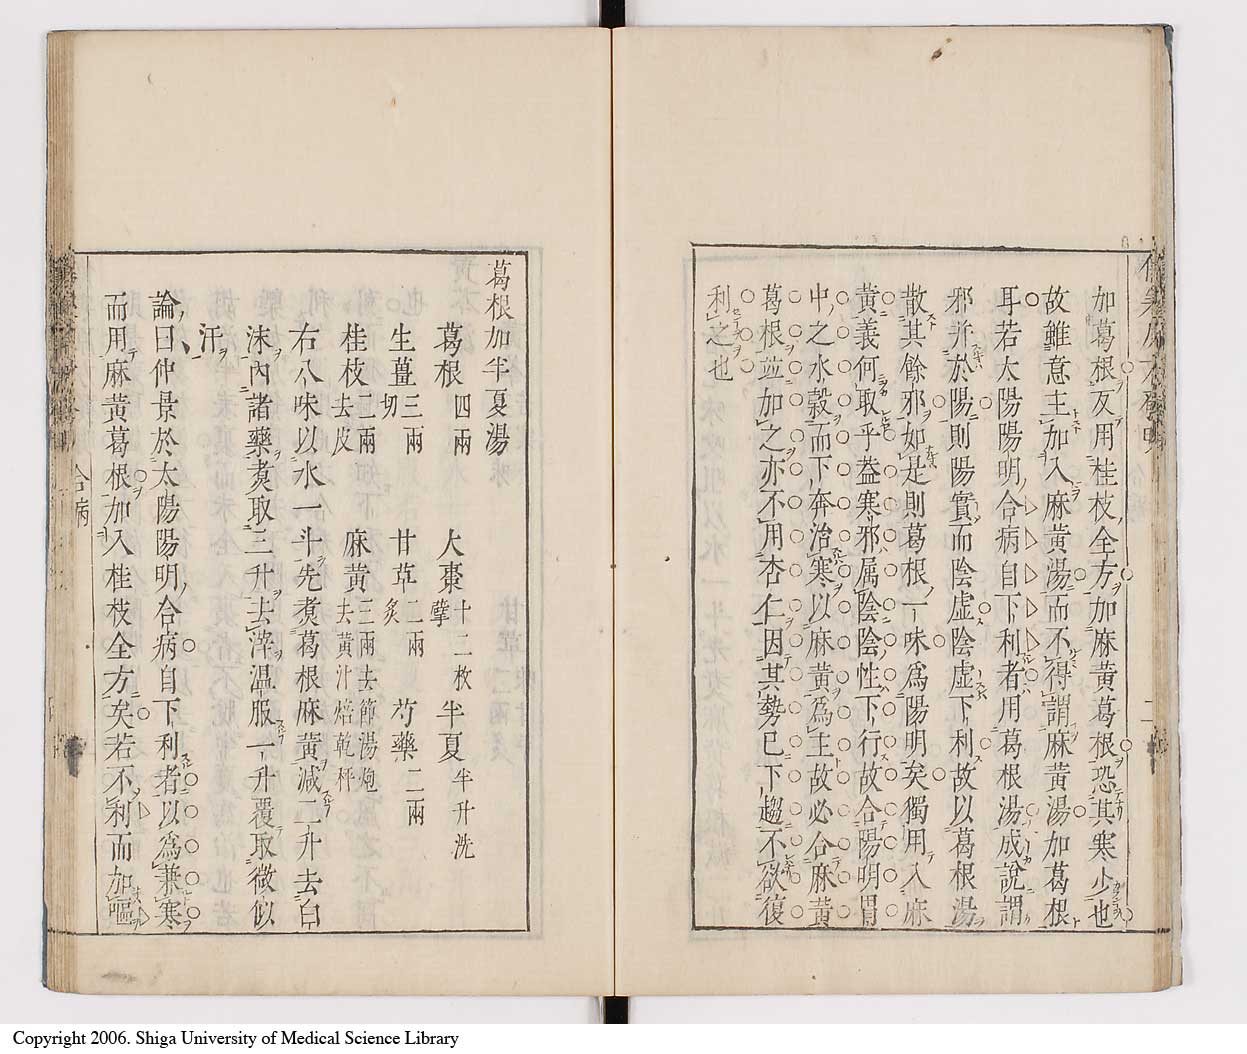 加葛根反用桂枝全方加麻黄葛根恐其寒少也
故雖意主加入麻黄湯而不得謂麻黄湯加葛根
耳若太陽陽明合病自下利者用葛根湯成說謂
邪并於陽則陽實而陰虚陰虚下利故以葛根湯
散其餘邪如是則葛根一味爲陽明矣獨用入麻
黄義何取乎葢寒邪属陰陰性下行故合陽明胃
中之水穀而下奔治寒以麻黄爲主故必合麻黄
葛根並加之亦不用杏仁因其勢已下趨不欲復
利之也
葛根加半夏湯
葛根四兩 大棗十二枚擘 半夏半升洗
生薑三兩切 甘草二兩炙 芍藥二兩
桂枝二兩去皮 麻黄三兩去節湯炮去黄汁焙乾秤
右八味以水一斗先煮葛根麻黄減二升去白
沫内諸藥煮取三升去滓温服一升覆取微似
汗
論曰仲景於太陽陽明合病自下利者以爲兼寒
而用麻黄葛根加入桂枝全方矣若不利而加嘔
合病
Copyright 2006. Shiga University of Medical Science Library